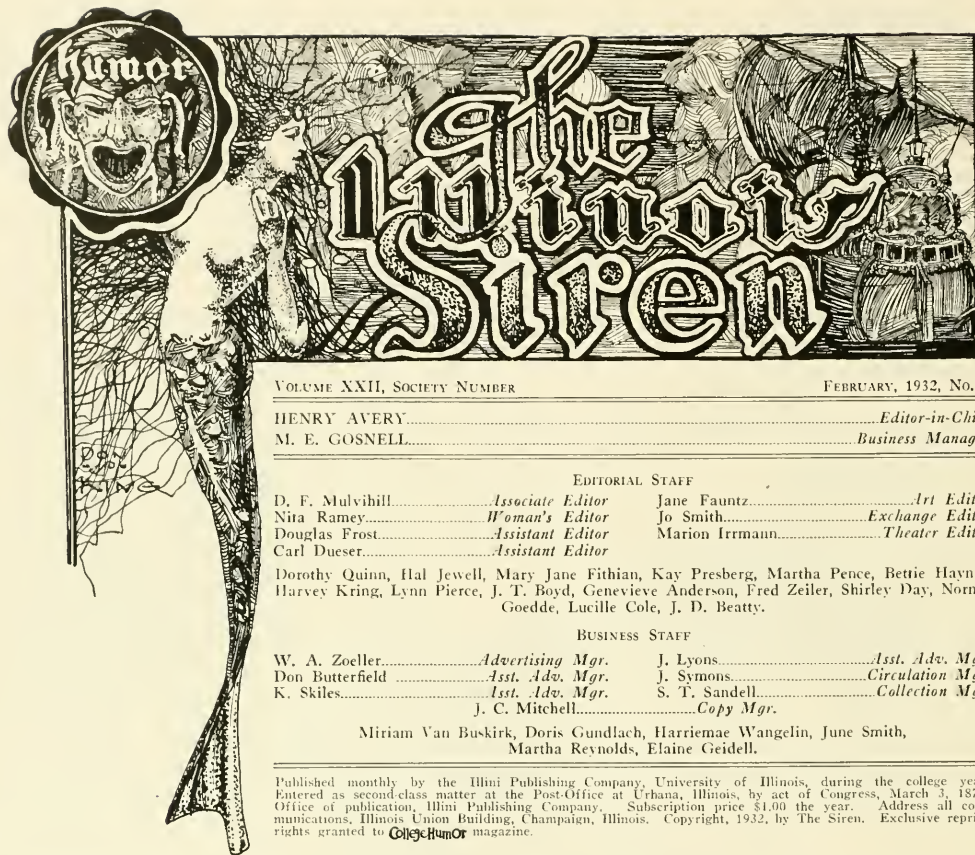 humor
The
Illinois
Siren
DON
KING
VOLUME XXII, SOCIETY NUMBER FEBRUARY, 1932, No.
HENRY AVERY Editor-in-Chi
M. E. GOSNELL Business Manag
EDITORIAL STAFF
D. F. Mulvihill Associate Editor Jane Fauntz Art Edit
Nita Ramey Woman's Editor Jo Smith Exchange Edit
Douglas Frost Assistant Editor Marion Irrmann Theater Edit
Carl Dueser Assistant Editor
Dorothy Quinn, Hal Jewell, Mary Jane Fithian, Kay Presberg, Martha Pence, Bettie Hayn
Harvey Kring, Lynn Pierce, J. T. Boyd, Genevieve Anderson, Fred Zeiler, Shirley Day, Norm
Goedde, Lucille Cole, J. D. Beatty.
BUSINESS STAFF
W. A. Zoeller Advertising Mgr. J. Lyons Asst. Adv. Mg
Don Butterfield Asst. Adv. Mgr. J. Symons Circulation Mg
K. Skiles Asst. Adv. Mgr. S. T. Sandell Collection Mg
J. C. Mitchell Copy Mgr.
Miriam Van Buskirk, Doris Gundlach, Harriemae Wangelin, June Smith,
Martha Reynolds, Elaine Geidell.
Published monthly by the Illini Publishing Company, University of Illinois, during the college yea
Entered as second-class matter at the Post-Office at Urbana, Illinois, by act of Congress, March 3, 187
Office of publication, Illini Publishing Company. Subscription price $1.00 the year. Address all co
munications, Illinois Union Building, Champaign, Illinois. Copyright, 1932, by The Siren. Exclusive repri
rights granted to College Humor magazine.